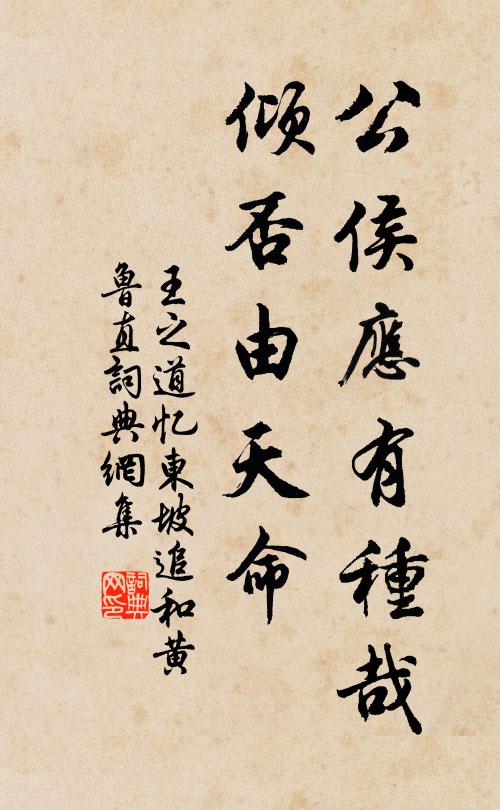 公侯應有種哉
傾否由天命
王之道忆東坡追和黄
魯直詞典網集
詞典网印